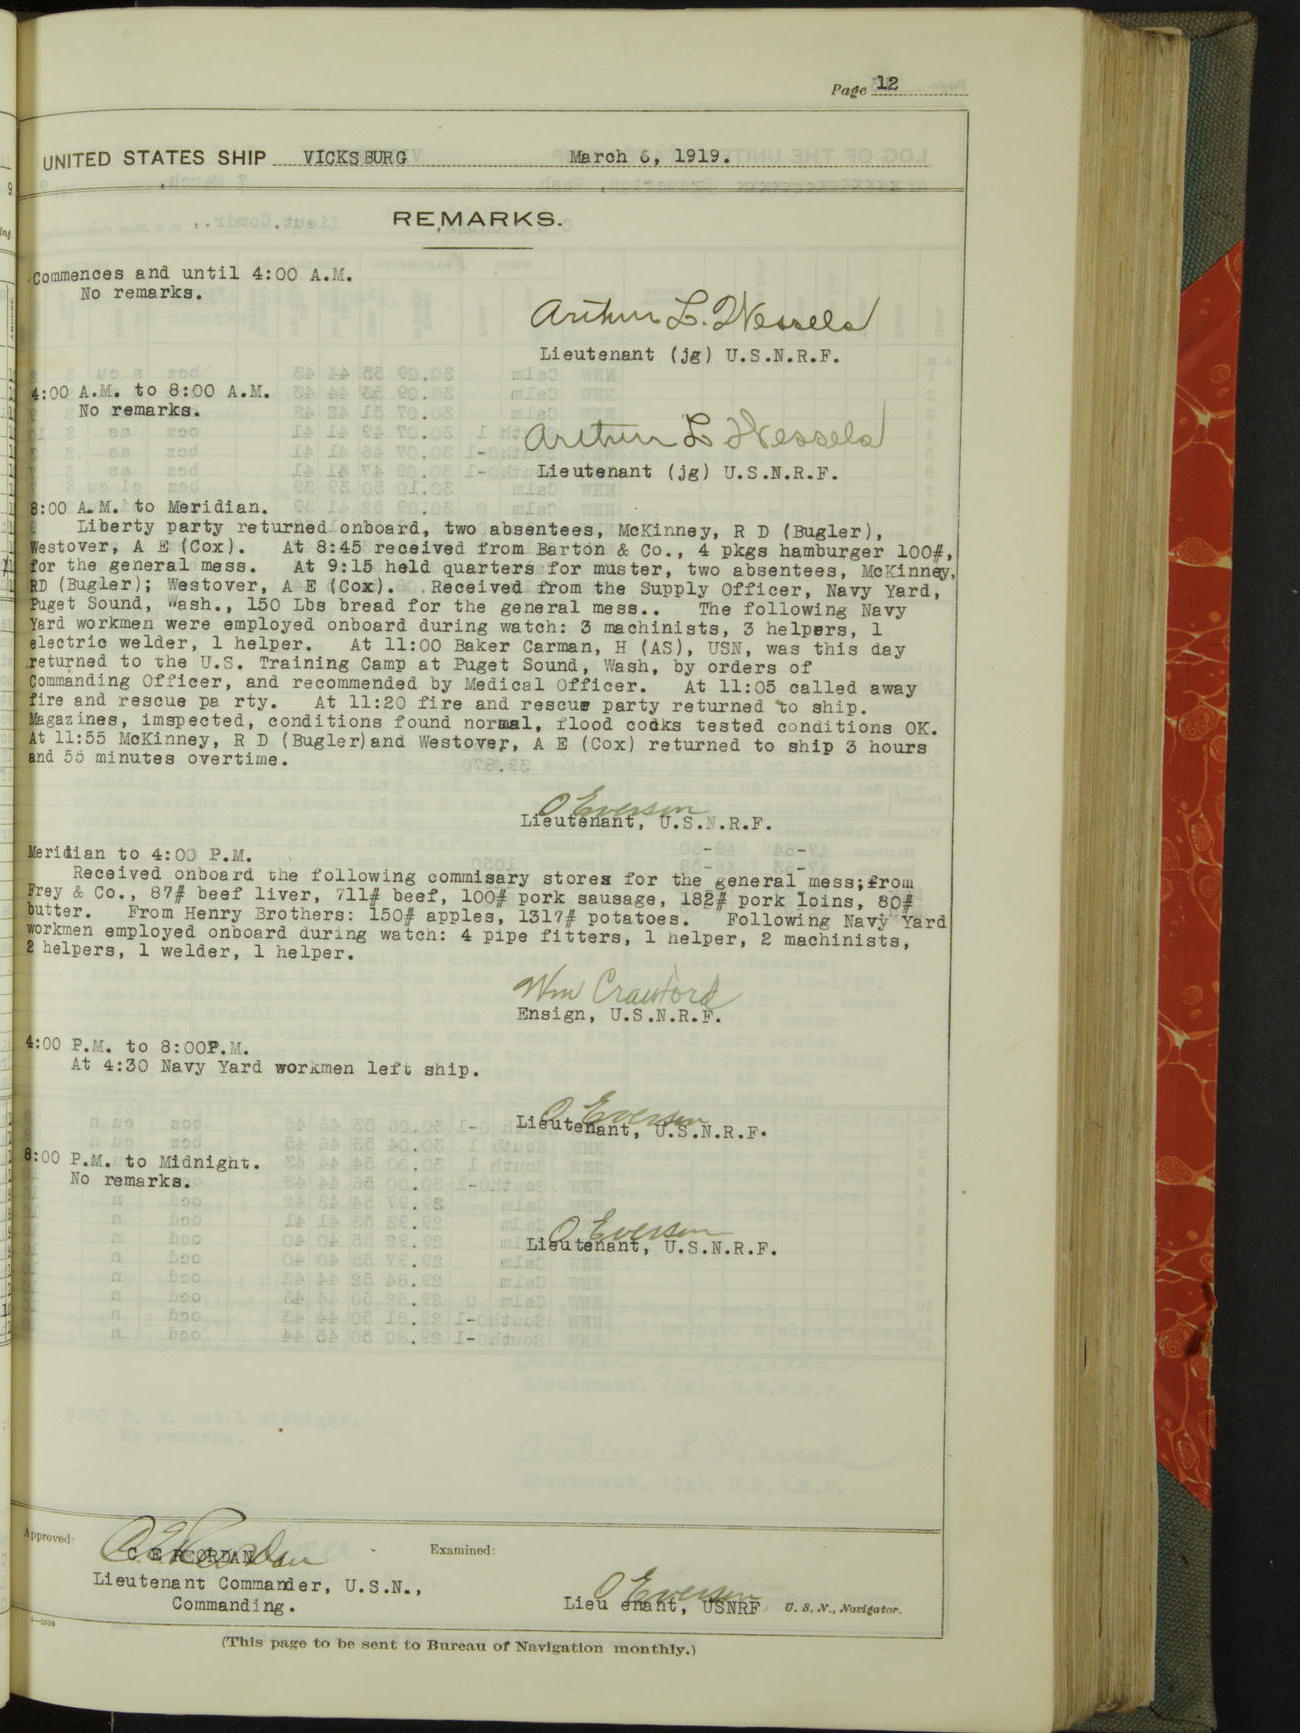 Page 12
UNITED STATES SHIP VICKSBURG March 6, 1919.
REMARKS.
Commences and until 4:00 A.M.
No remarks.
Arthur L. Wessels
Lieutenant (jg) U.S.N.R.F.
4:00 A.M. to 8:00 A.M.
No remarks.
Arthur L Wessels
Lieutenant (jg) U.S.N.R.F.
8:00 A.M. to Meridian.
Liberty party returned onboard, two absentees, McKinney, R D (Bugler),
Westover, A E (Cox). At 8:45 received from Barton & Co., 4 pkgs hamburger 100#,
for the general mess. At 9:15 held quarters for muster, two absentees, McKinney,
RD (Bugler); Westover, A E (Cox). Received from the Supply Officer, Navy Yard,
Puget Sound, Wash., 150 Lbs bread for the general mess.. The following Navy
Yard workmen were employed onboard during watch: 3 machinists, 3 helpers, 1
electric welder, 1 helper. At 11:00 Baker Carman, H (AS), USN, was this day
returned to the U.S. Training Camp at Puget Sound, Wash, by orders of
Commanding Officer, and recommended by Medical Officer. At 11:05 called away
fire and rescue pa rty. At 11:20 fire and rescue party returned to ship.
Magazines, imspected, conditions found normal, flood cocks tested conditions OK.
At 11:55 McKinney, R D (Bugler)and Westover, A E (Cox) returned to ship 3 hours
and 55 minutes overtime.
O Everson
Lieutenant, U.S.N.R.F.
Meridian to 4:00 P.M.
Received onboard the following commisary stores for the general mess;from
Frey & Co., 87# beef liver, 711# beef, 100# pork sausage, 182# pork loins, 80#
butter. From Henry Brothers: 150# apples, 1317# potatoes. Following Navy Yard
workmen employed onboard during watch: 4 pipe fitters, 1 helper, 2 machinists,
2 helpers, 1 welder, 1 helper.
Wm Crawford
Ensign, U.S.N.R.F.
4:00 P.M. to 8:00P.M.
At 4:30 Navy Yard workmen left ship.
O Everson
Lieutenant, U.S.N.R.F.
8:00 P.M. to Midnight.
No remarks.
O Everson
Lieutenant, U.S.N.R.F.
Approved:
C E REORDAN
Lieutenant Commander, U.S.N.,
Commanding.
Examined:
O Everson
Lieu enant, USNRF U. S. N., Navigator.
(This page to be sent to Bureau of Navigation monthly.)